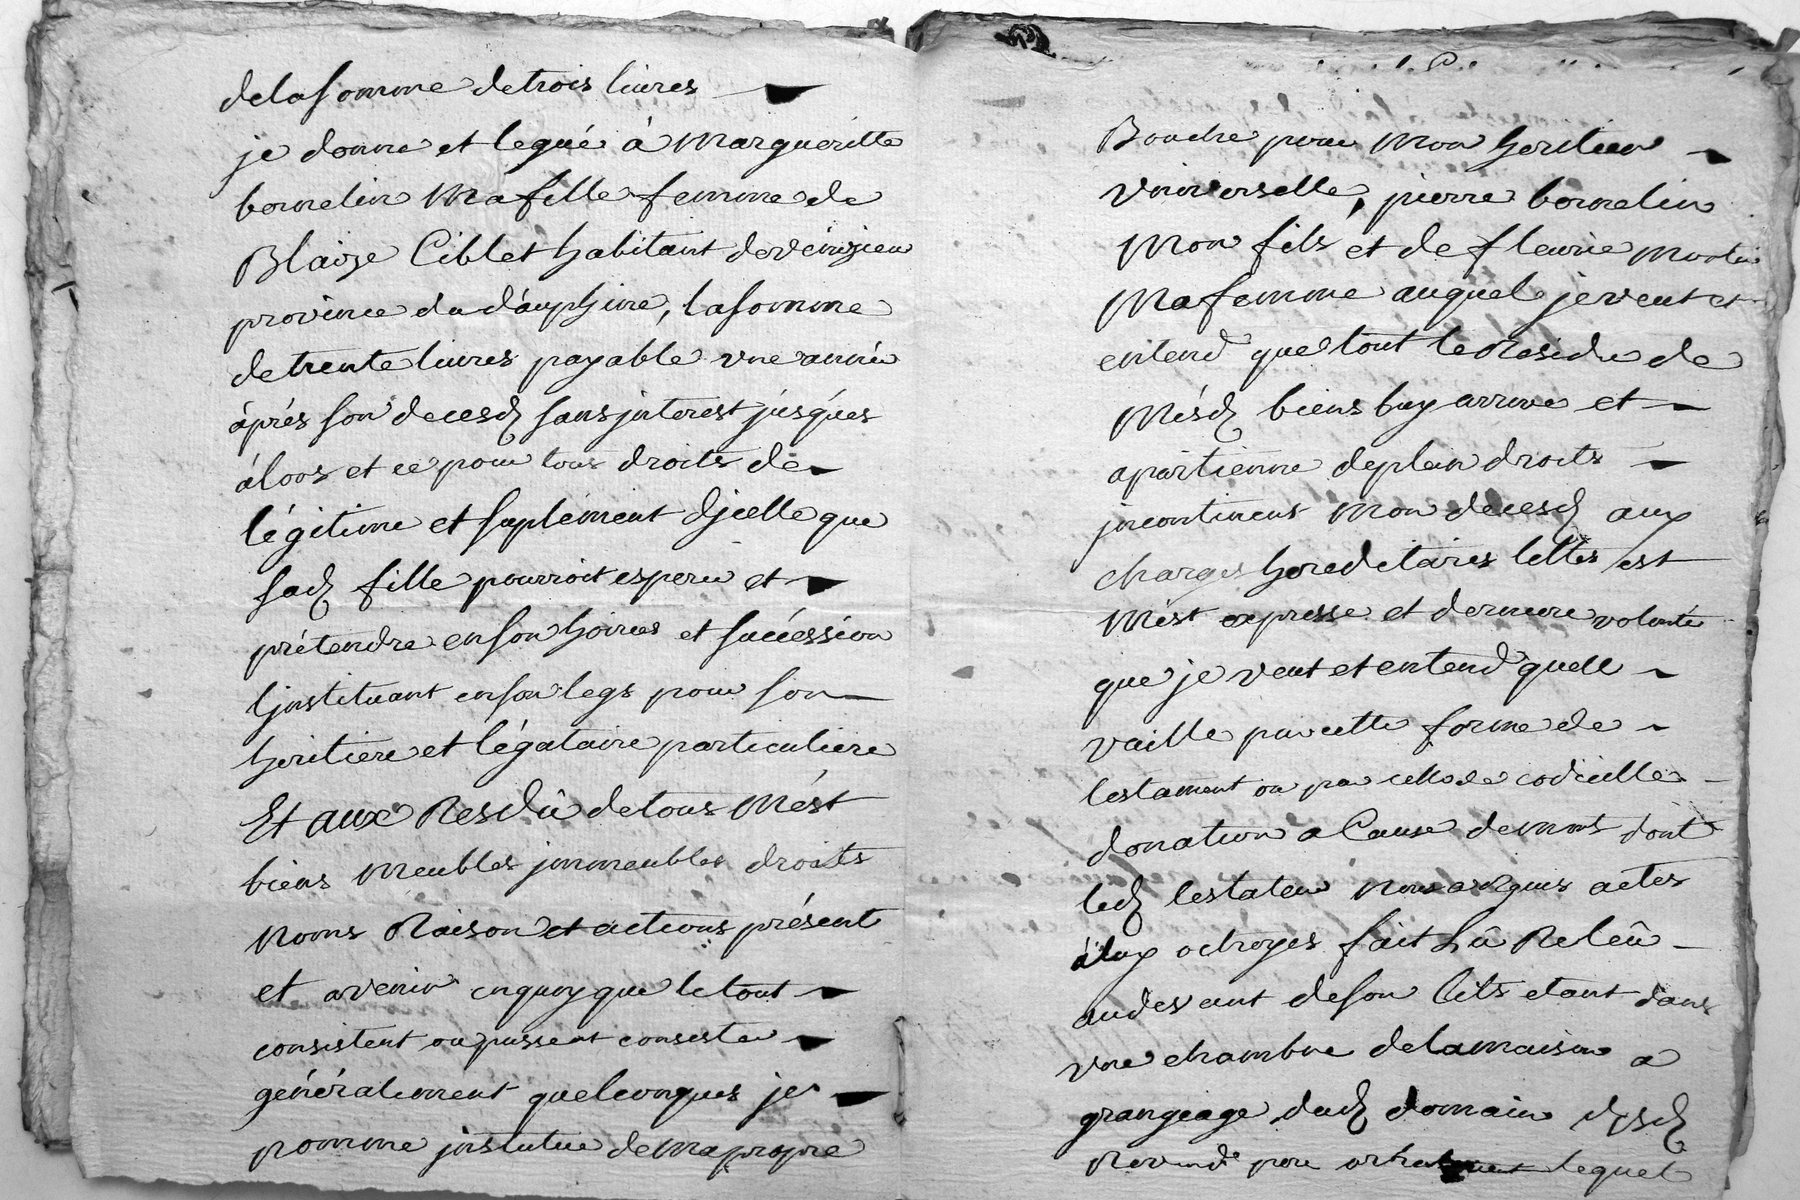 delasomme detrois livres
je donne et legué à Margueritte
bornelin Mafille femme de
Blaize Ciblet habitant devénizieu
province du dáuphine, lasomme
detrente livres payable vne année
áprés son decesd sans jnterest jusq'ues
áloos et ce pour tous droits de
légitime et suplément djcelle que
sad fille pourroit esperer et
prétendre enson hoiries et succéssion
Ljnstituant enson legs pour son
heritiere et légataire particuliere
Et aux Residû detous Mést
biens Meubles jmmeubles droits
Noms Raison et actions présent
et avenir enquoy que letout
consistent ou puissent consister
généralement quelconques je
nomme jnstitue de Mapropre
Bouche pour Mon heritier
vniverselle, pierre bornelin
Mon fils et de fleurie
Mafemme auquel jeveut et
entend que tout leResidu de
Mésd biens luy arrive et
apartienne deplein droits
jncontinent Mon decesd aux
charges hereditaires telles est
Mést expresse et derniere volonté
que je veut et entend quelle
vaille par cette forme de
testament ou par celle de codicille
donation a Cause demort dont
led testateur Nous a Requis actes
áluy octroyes fait Lû Releû
audevant deson Lits etant dans
vne chambre delamaison a
grangeage dud domaine
lequel